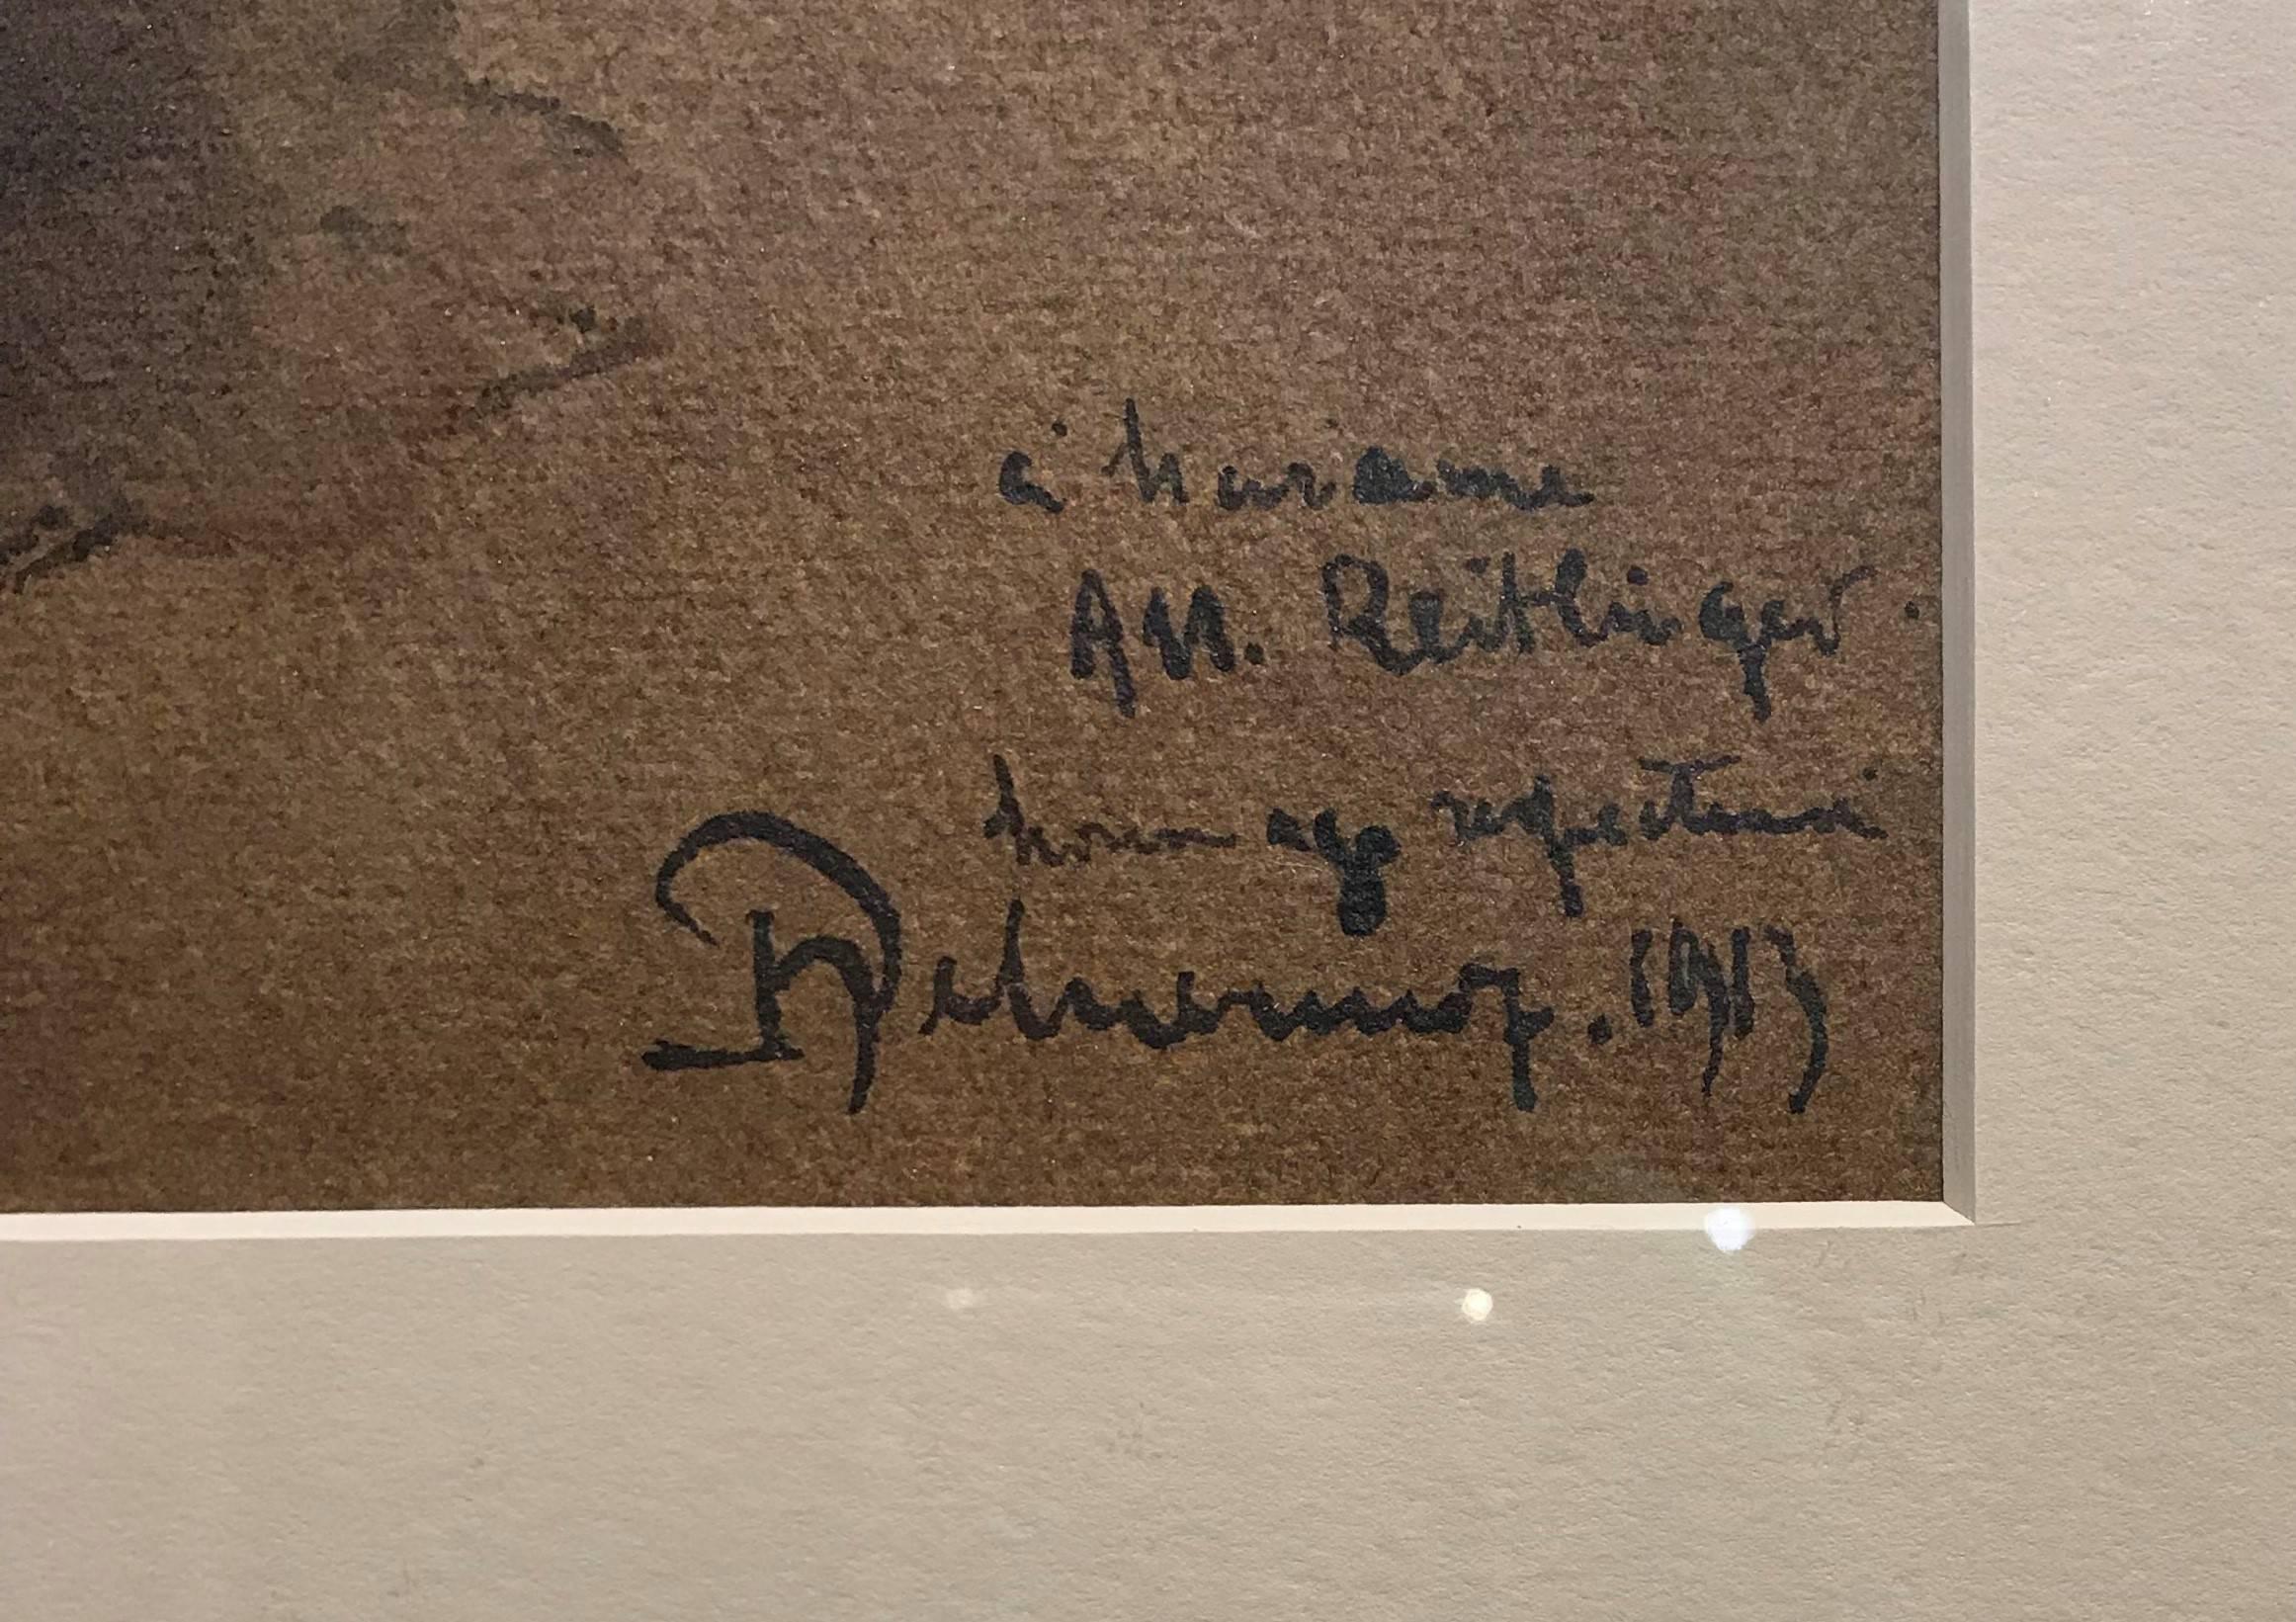 à Madame
AM. Reitlinger.
hommage respectueux
1917